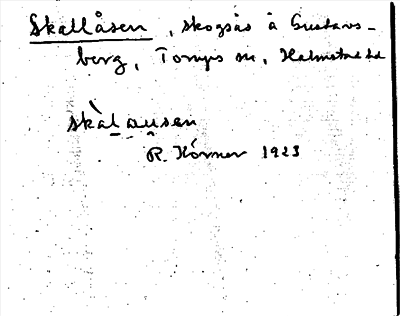 Skallåsen, skogsås å Gustavs-
berg, Tönnersjö hd, Halmstad hd
skàlausen
R. Hörner 1923